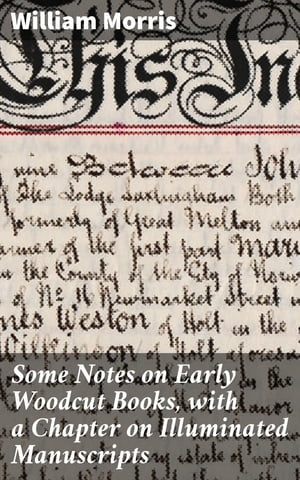 William Morris
This In
nine Between John
The Lodge Saxlingham Both
formerly of Great Melton and
of the first part Mar
in the County of the City of Norw
of No. 16 Newmarket Street
nes Weston of Holt in the
Wilkinson of Holt aforesa
Some Notes on Early
Woodcut Books, with
a Chapter on Illuminated
Manuscripts